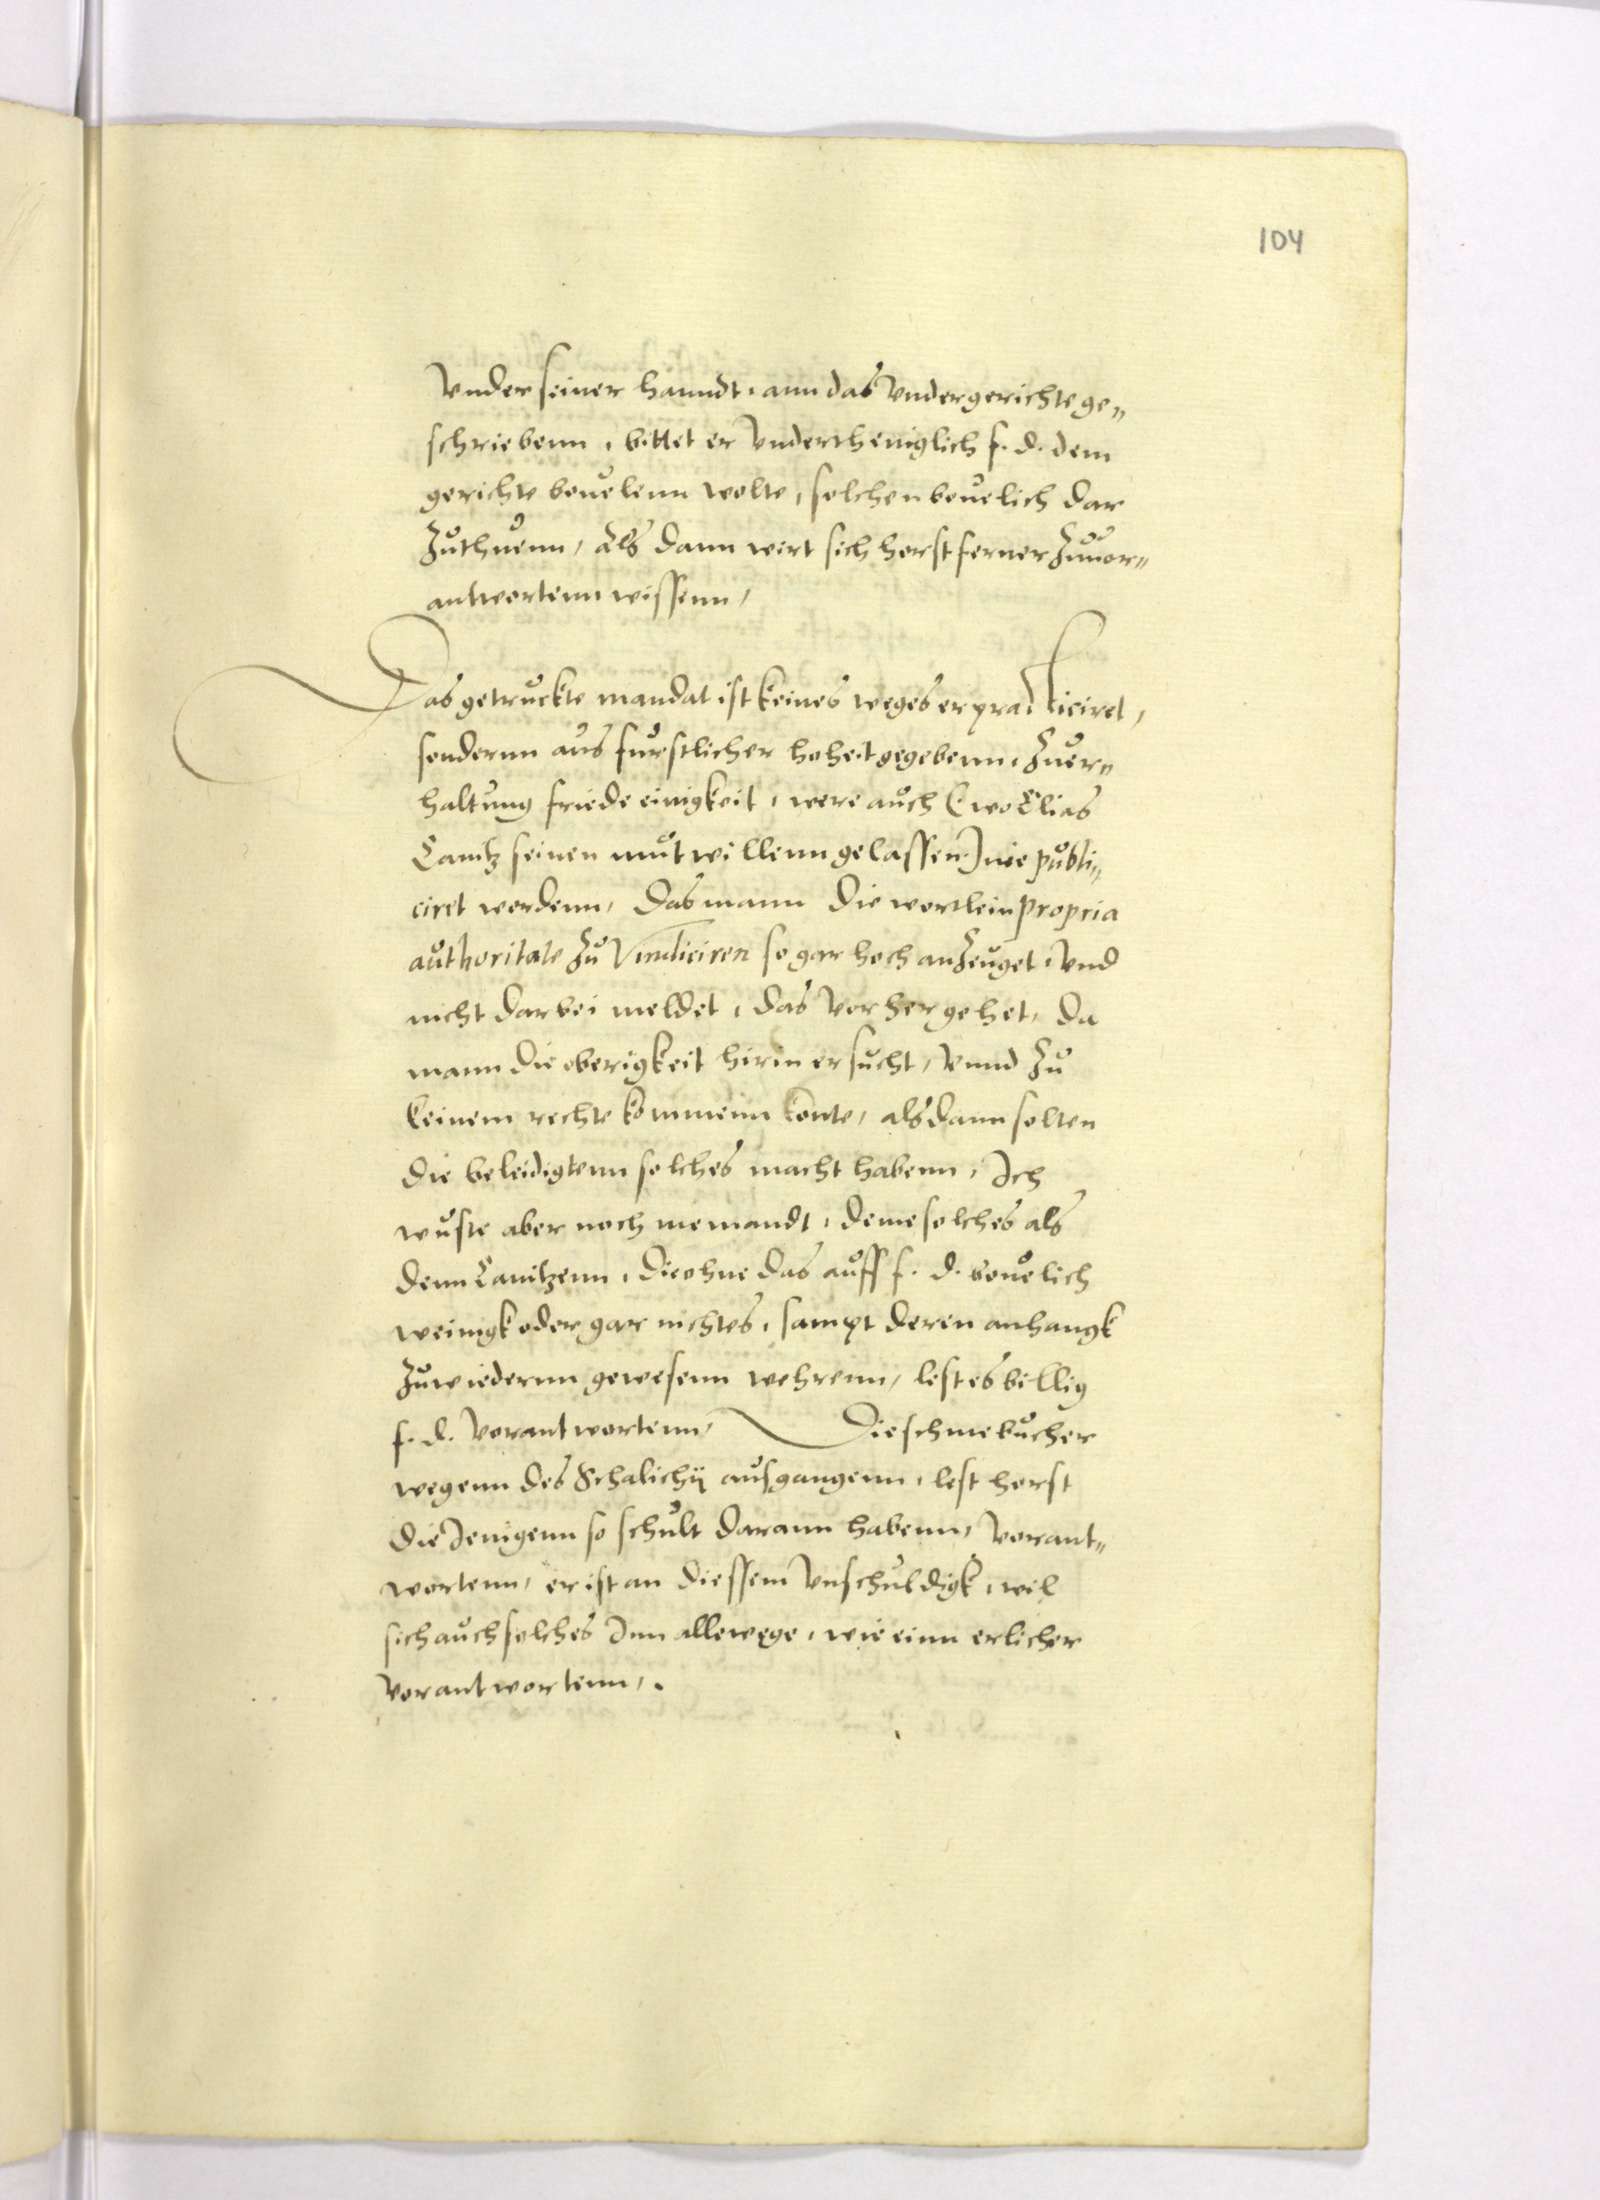 104
Vnder seiner hanndt, ann das Vndergerichte ge„
schriebenn, bittet er Vndertheniglich f. d. dem
gerichte beuelenn wolte, solchen beuelich dar
Zuthuenn, Als dann wirt sich horst ferner Zuuor„
antwortenn wissenn,
Das getruckte mandat ist keines weges erpracticiret,
sondernn aus furstlicher hoheit gegebenn, Zuer„
haltung friede einigkeit, were auch (wo Elias
Canitz seinen mutwillenn gelassen) nie publi„
ciret wordenn, Das mann die wortlein propria
authoritate Zu Vindiciren so gar hoch anZeuget, Vnd
nicht darbei meldet, das vorhergehet, Da
mann die oberigkeit hirin ersucht, Vnnd Zu
keinem rechte kommenn konte, alsdann solten
die beleidigtenn solches macht habenn, Ich
wuste aber noch niemandt, deme solches als
denn Canitzenn, die ohne das auff f. d. beuelich
weinigk oder gar nichtes, sampt deren anhangk
Zuwiedernn gewesenn wehrenn, lest es billig
f. d. Vorantwortenn, Die schmebucher
wegenn des Schalichij ausgangenn, lest horst
die Jenigenn so schult darann habenn, Vorant„
wortenn, er ist an diessem Vnschuldigk, wil
sich auch solches Inn allewege, wie einn erlicher
Vorantwortenn,.